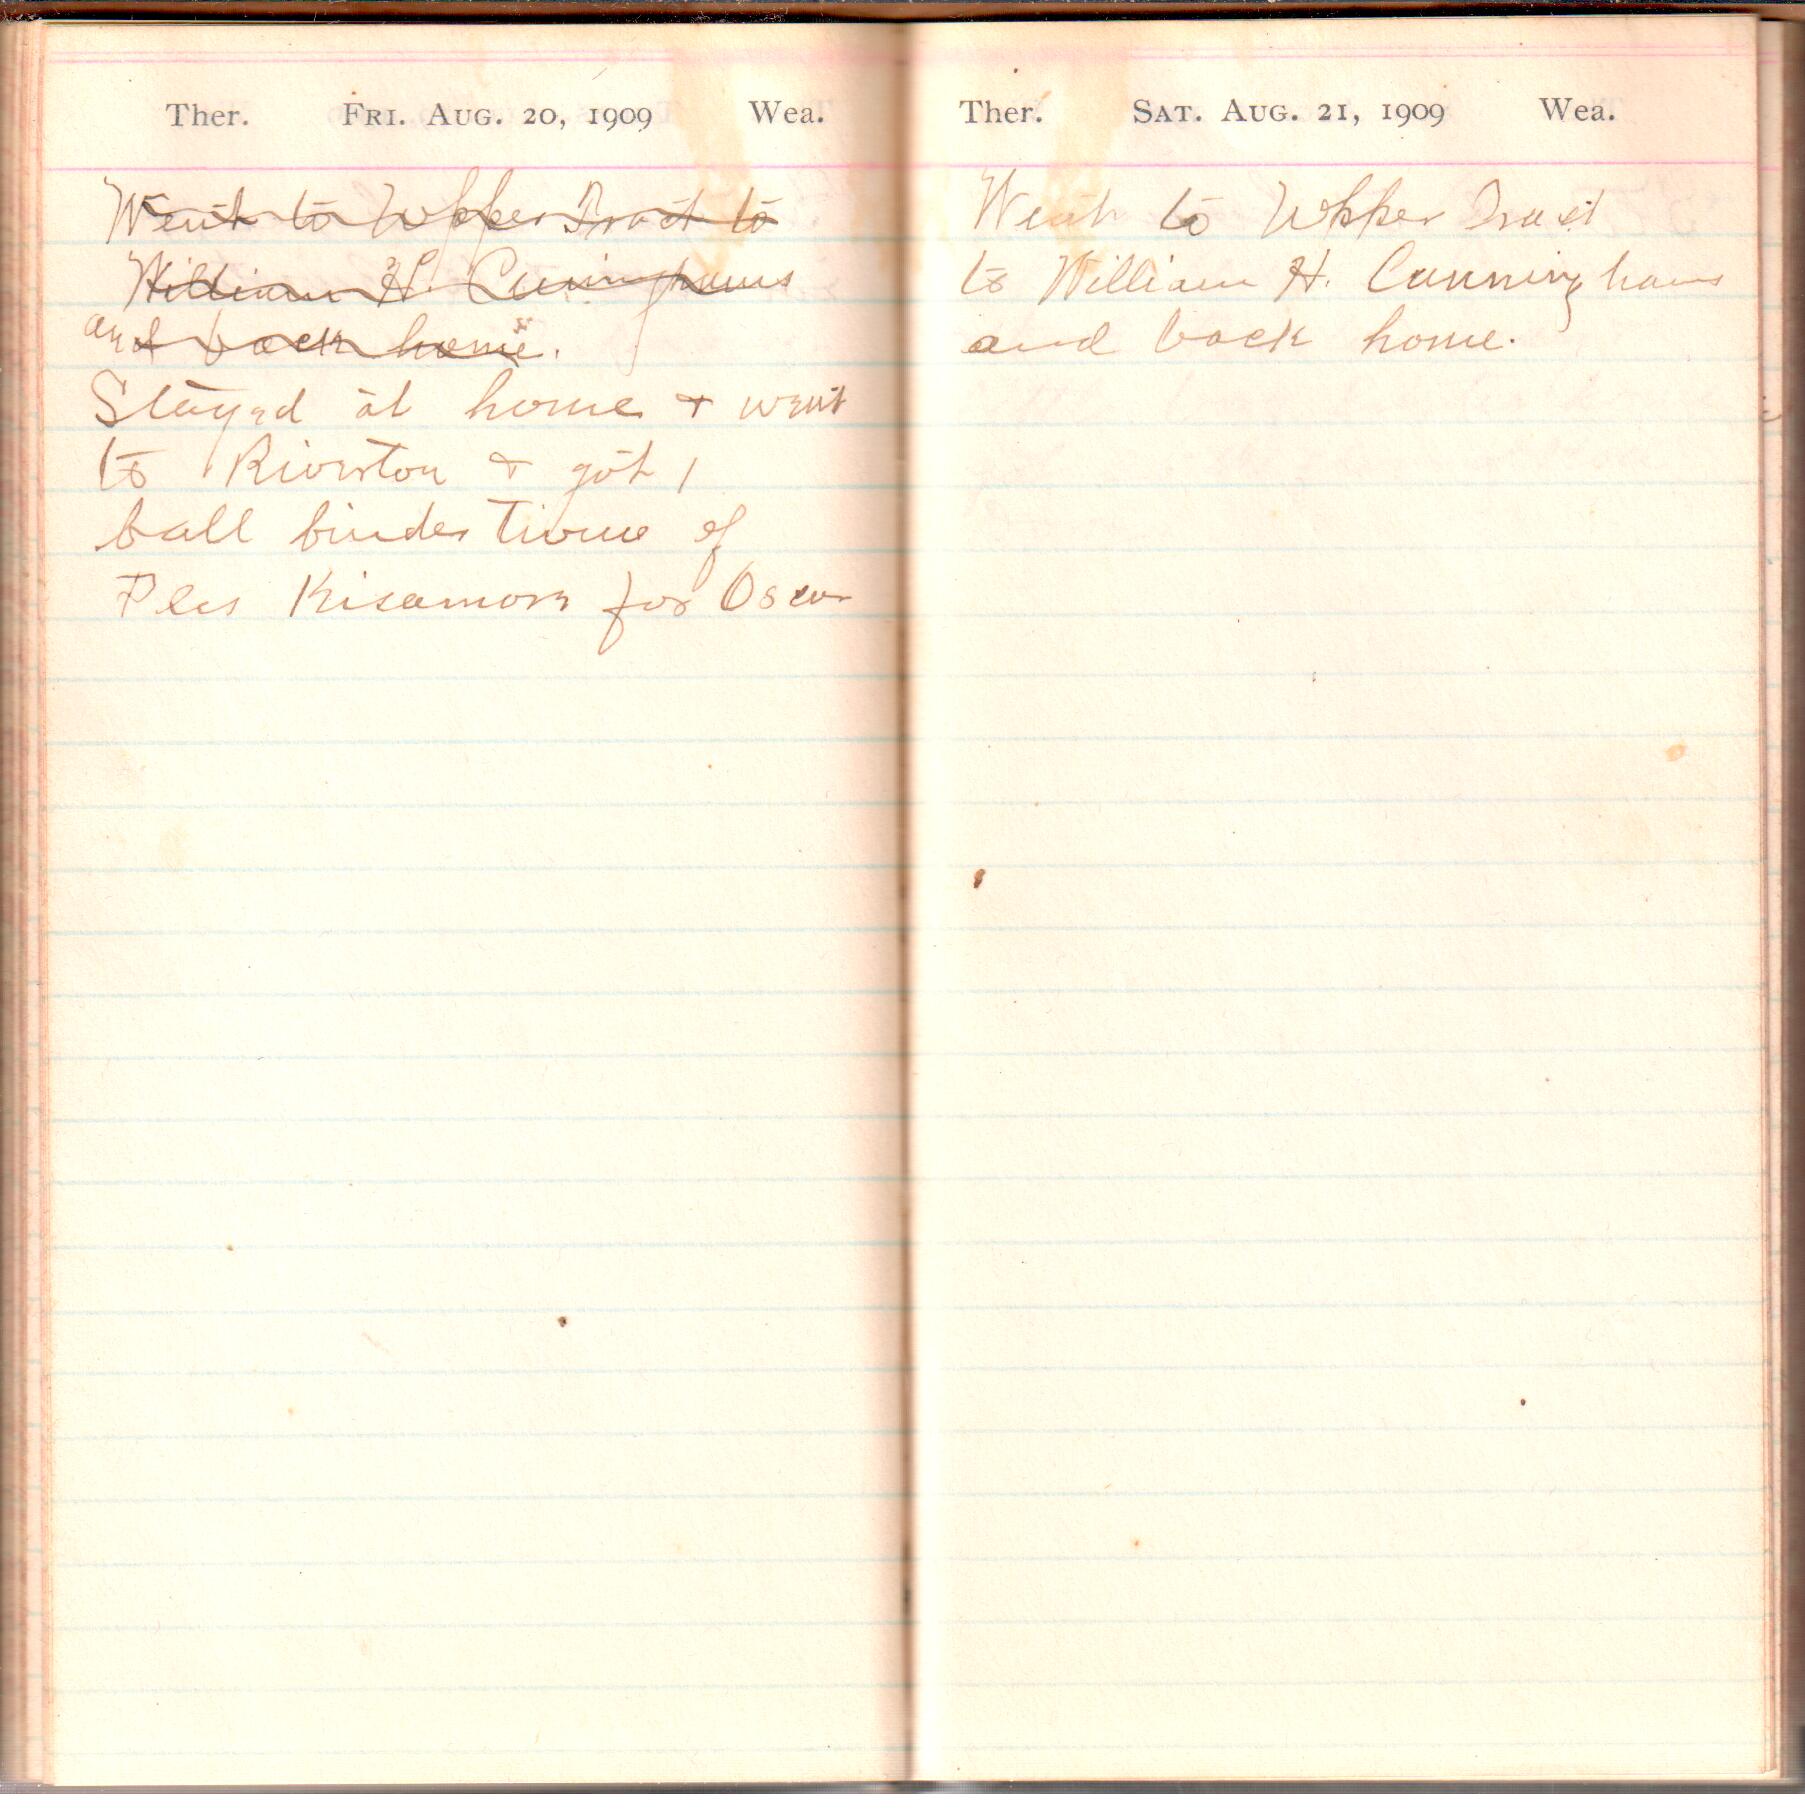 Ther. Fri. Aug. 20, 1909 Wea.
Went to Upper Tract to
William H. Cuninghams
and back home.
Stayed at home + went
to Riverton + got 1
ball binder Twine of
Ples Kisamore for Oscar
Ther. Sat. Aug. 21, 1909 Wea.
Went to Upper Tract
to William H. Cunninghams
and back home.